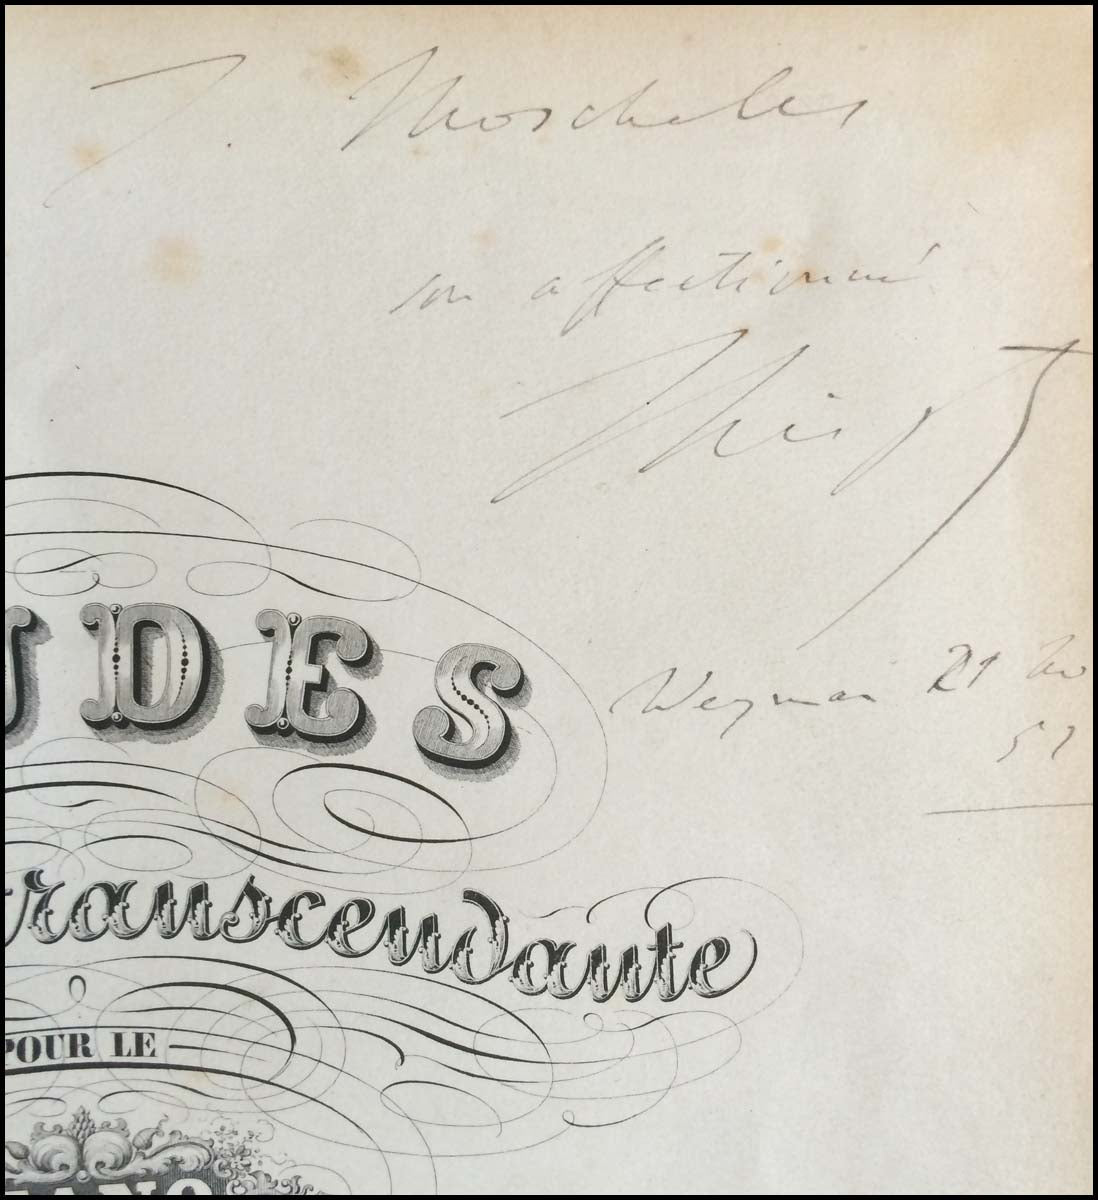 J. Moscheles
son affectionné
F Liszt
Weymar 21 No
51
UDES
transcendante
POUR LE
PIANO